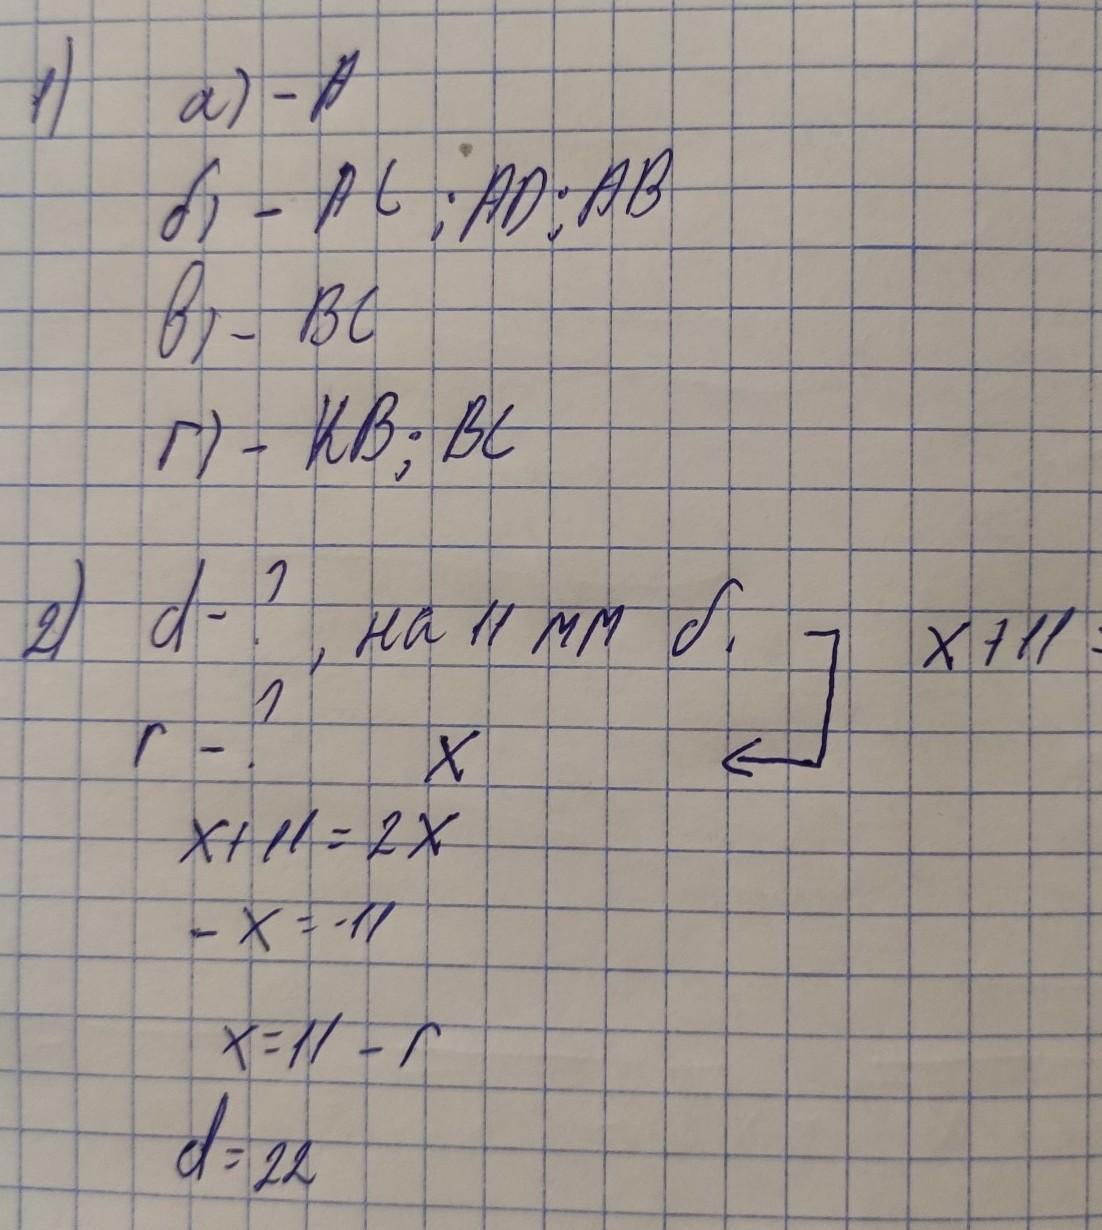 1) а) - A
б) - AC ; AD ; AB
в) - BC
г) - KB ; BC
2) d - ? , на 11 мм б. x + 11 =
r - ? x
x + 11 = 2x
- x = -11
x = 11 - r
d = 22